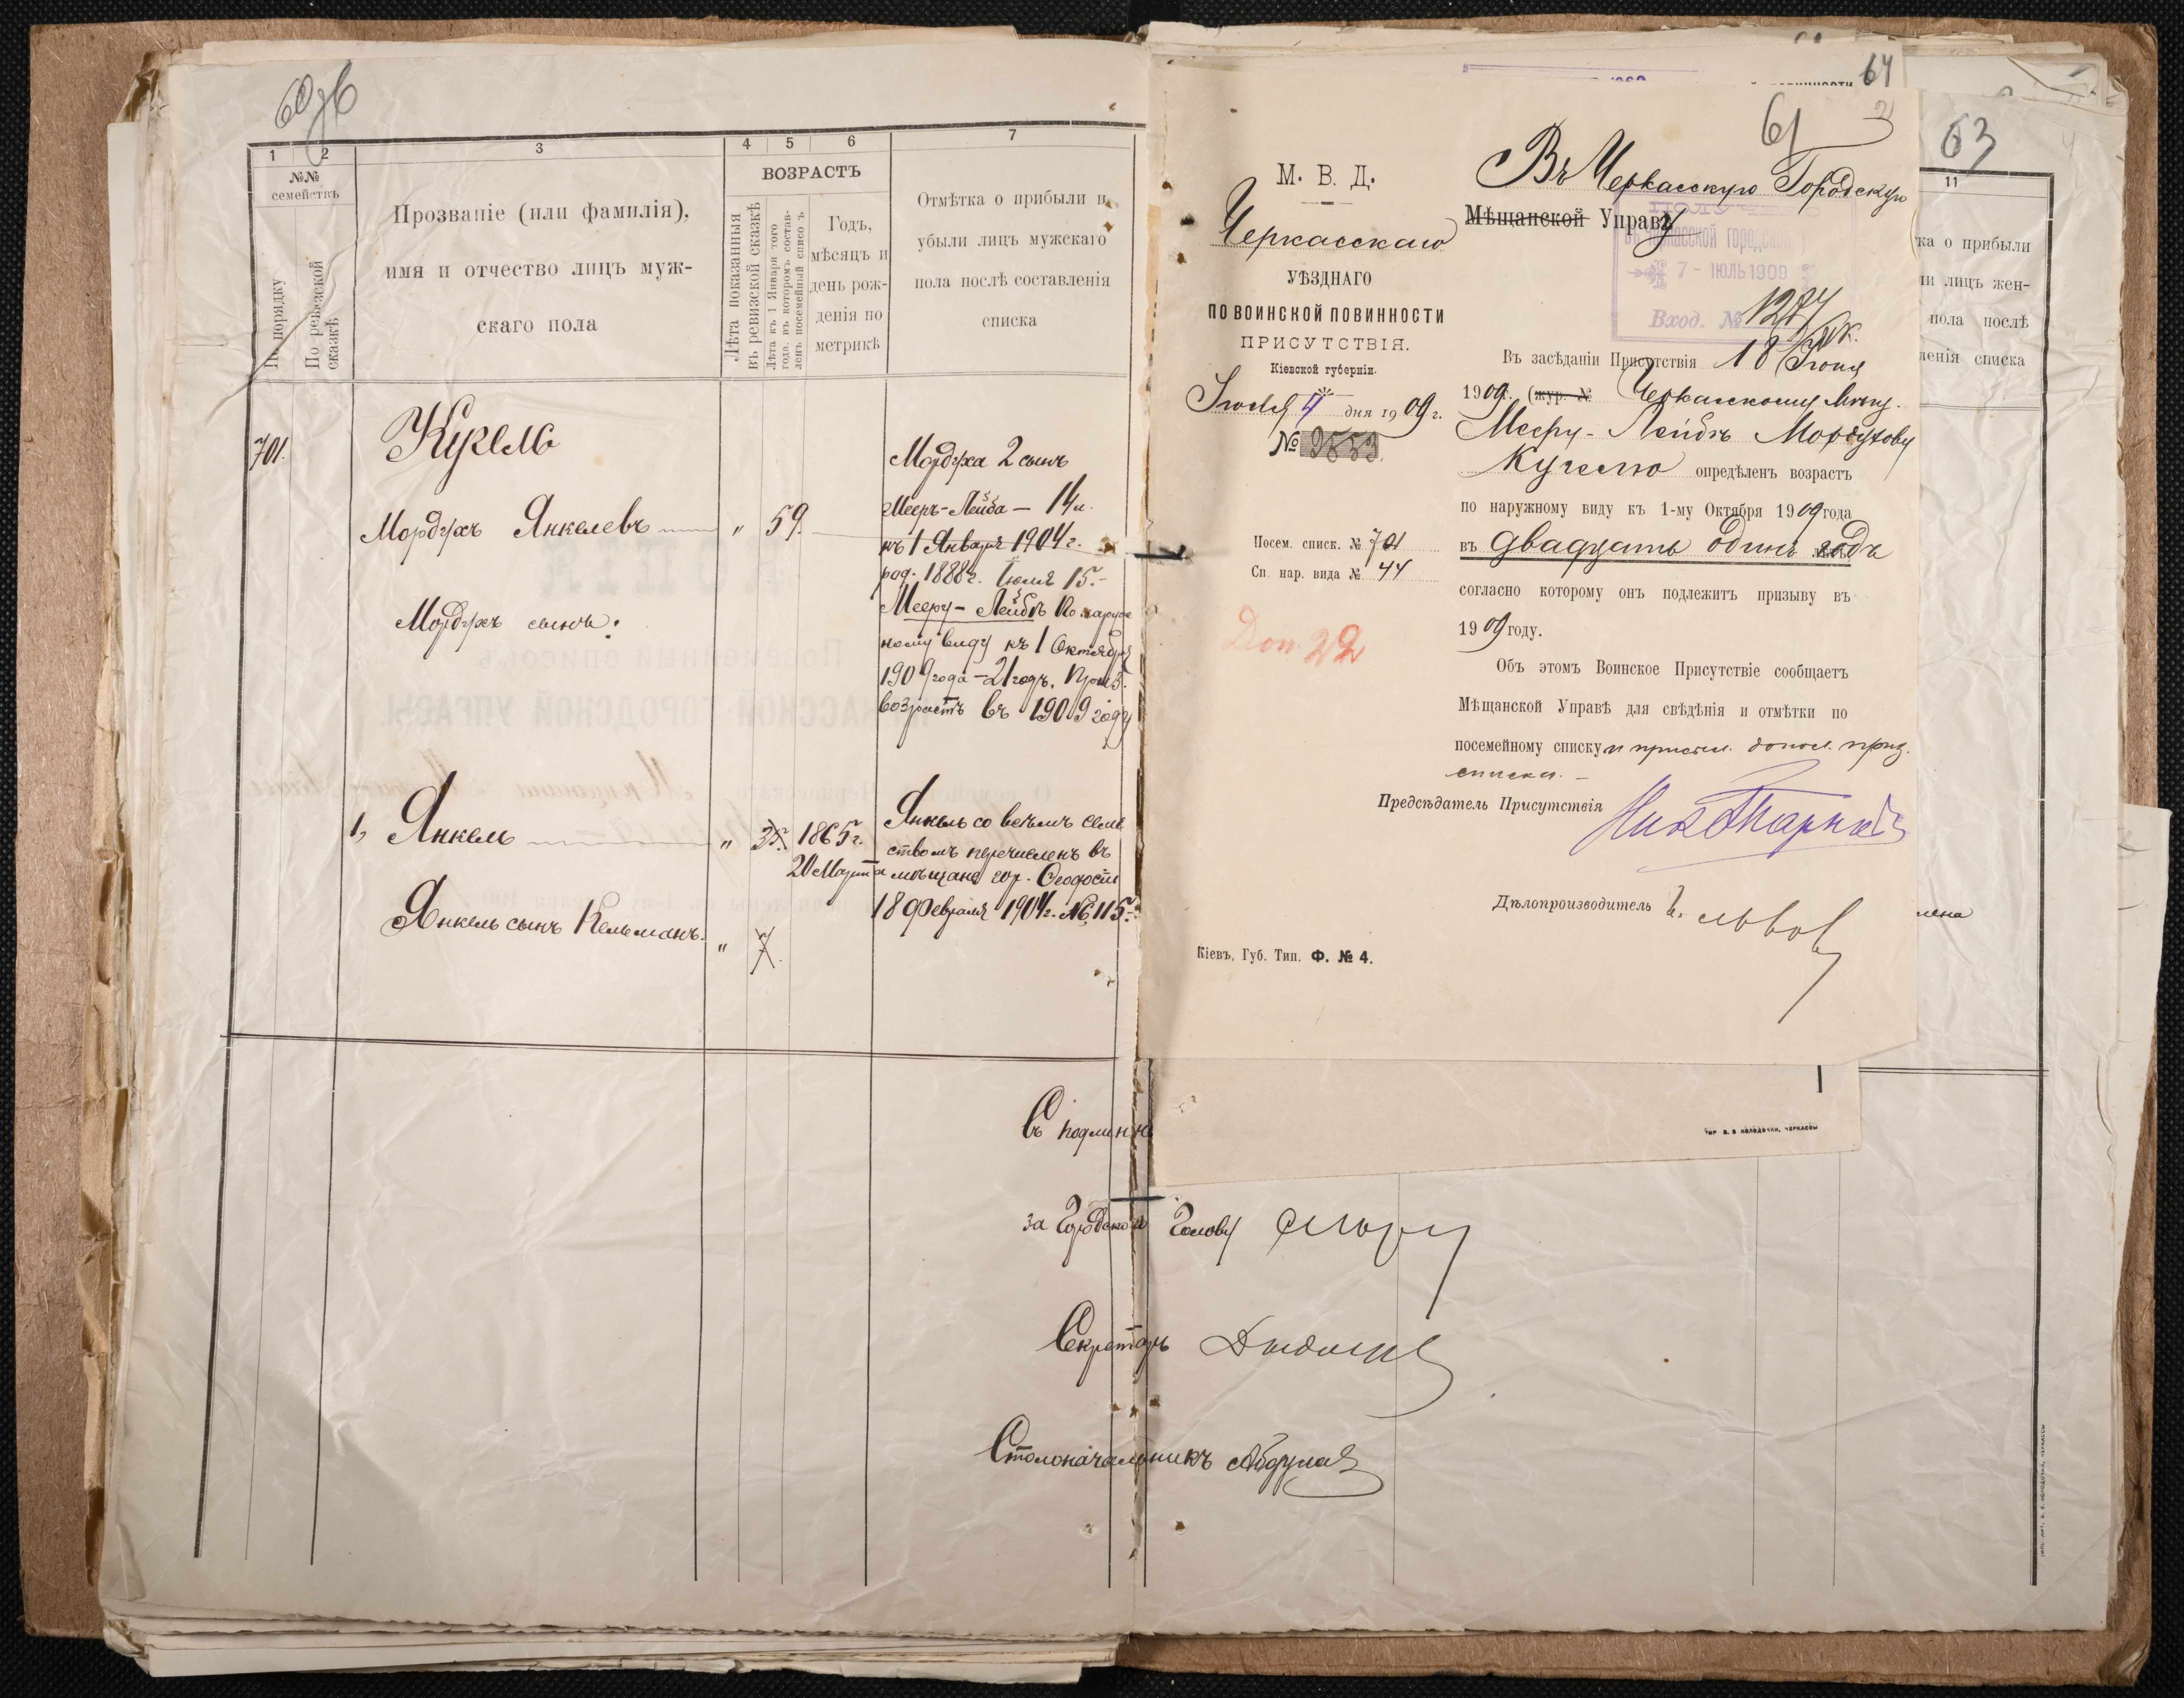 1
2
3
4
5
6
7
№№
семействъ
По порядку
По ревизской
сказкѣ
Прозваніе (или фамилія),
имя и отчество лицъ муж-
скаго пола
ВОЗРАСТЪ
Лѣта показанныя
въ ревизской сказкѣ
Лѣта къ 1 Января того
года, въ которомъ состав-
ленъ посемейный списо ъ
Годъ,
мѣсяцъ и
день рож-
денія по
метрикѣ
Отмѣтка о прибыли и
убыли лицъ мужскаго
пола послѣ составленія
списка
701.
Кугель
Мордухъ Янкелевъ " 59.
Мордухъ сынъ:
1, Янкель " 35. 1865 г.
20 Марта
Янкель сынъ Кельманъ. " 7.
Мордуха 2 сынъ
Мееръ-Лейба — 14 л.
къ 1 Января 1904 г.
род. 1888 г. Іюля 15.-
Мееру-Лейбѣ по наруж
ному виду къ 1 Октября
1909 года - 21 годъ.
возрастъ въ 1909 году
Янкель со всѣмъ семе
ствомъ перечисленъ въ
мѣщане гор. Ѳеодосіи
18 Февраля 1904 г. № 115.
64
61
М. В. Д.
Черкасскаго
УѢЗДНАГО
ПО ВОИНСКОЙ ПОВИННОСТИ
ПРИСУТСТВІЯ.
Кіевской губерніи.
Іюля 4 дня 1909 г.
№ 9553.
Посем. списк. № 701
Сп. нар. вида № 44
Доп. 22
Кіевъ, Губ. Тип. Ф. № 4.
Въ Черкасскую Городскую
Мѣщанской Управу
7 - ІЮЛЬ 1909
Вход. №
Въ засѣданіи Присутствія 18 Іюня
1909 г. (жур. № Черкасскому мѣщ.
Мееру-Лейбѣ Мордухову
Кугелю опредѣленъ возрастъ
по наружному виду къ 1-му Октября 1909 года
въ двадцать одинъ годъ
согласно которому онъ подлежитъ призыву въ
1909 году.
Объ этомъ Воинское Присутствіе сообщаетъ
Мѣщанской Управѣ для свѣдѣнія и отмѣтки по
посемейному списку и
списка. -
Предсѣдатель Присутствія
Дѣлопроизводитель
63
11
ка о прибыли
ли лицъ жен-
пола послѣ
ленія списка
Въ подлинно
за Городского Голову
Секретарь
Столоначальникъ